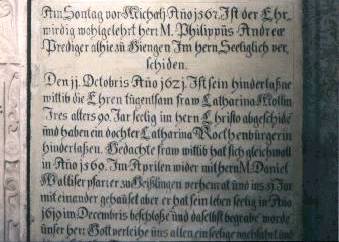 Am Sontag vor Michaelj Año 1567. Ist der Ehr
wirdig wohlgelehrt herr M. Philippüs Andreæ
Prediger alhie zü Giengen Im herrn Seeliglich ver
schiden.
Den jj. Octobris Año 1621 Ist sein hinderlaßne
wittib die Ehren tügentsam fraw Catharina Mollin
Ires alters 90. Jar seelig im herrn Christo abgescheidē
und haben ein dochter Catharina Roethenbürgerin
hinderlaßen. Gedachte fraw wittib hat sich gleichwoll
in Año 1569. Im Aprilen wider mit herrn M. Daniel
pfarrer zü Geißlingen verheürat und ins Jar
mit einander gehaüset aber er hat sein leben seelig in Año
1610 im Decembris beschloße und daselbst begrabē wordē
ünser herr Gott verleihe üns allen ein seelige nachfahrt und